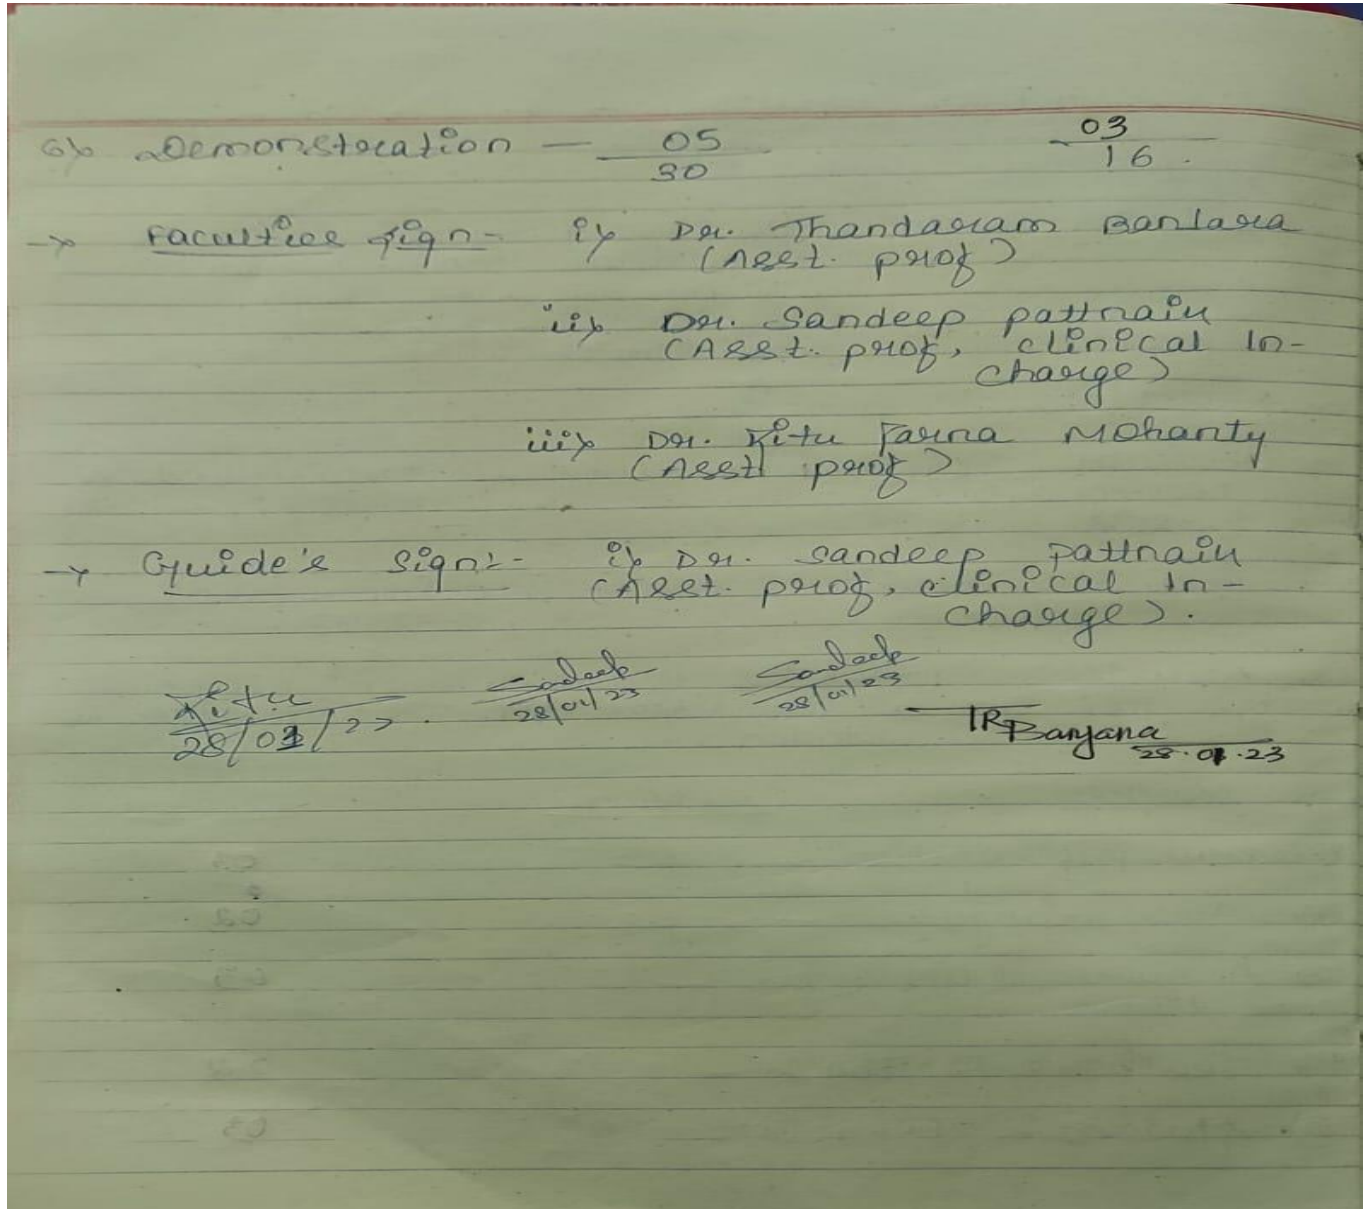 6) Demonstration — 05 03
30 16.
→ Faculties sign- i) Dr. Thandaram
(Asst. prof)
ii) Dr. Sandeep pattnaik
(Asst. prof, clinical In-
charge)
iii) Dr. Ritu Mohanty
(Asst prof)
→ Guide's Sign:- i) Dr. Sandeep Pattnaik
(Asst. prof, clinical In-
charge).
Ritu Sandeep Sandeep
28/01/23 28/01/23
TR
28.01.23